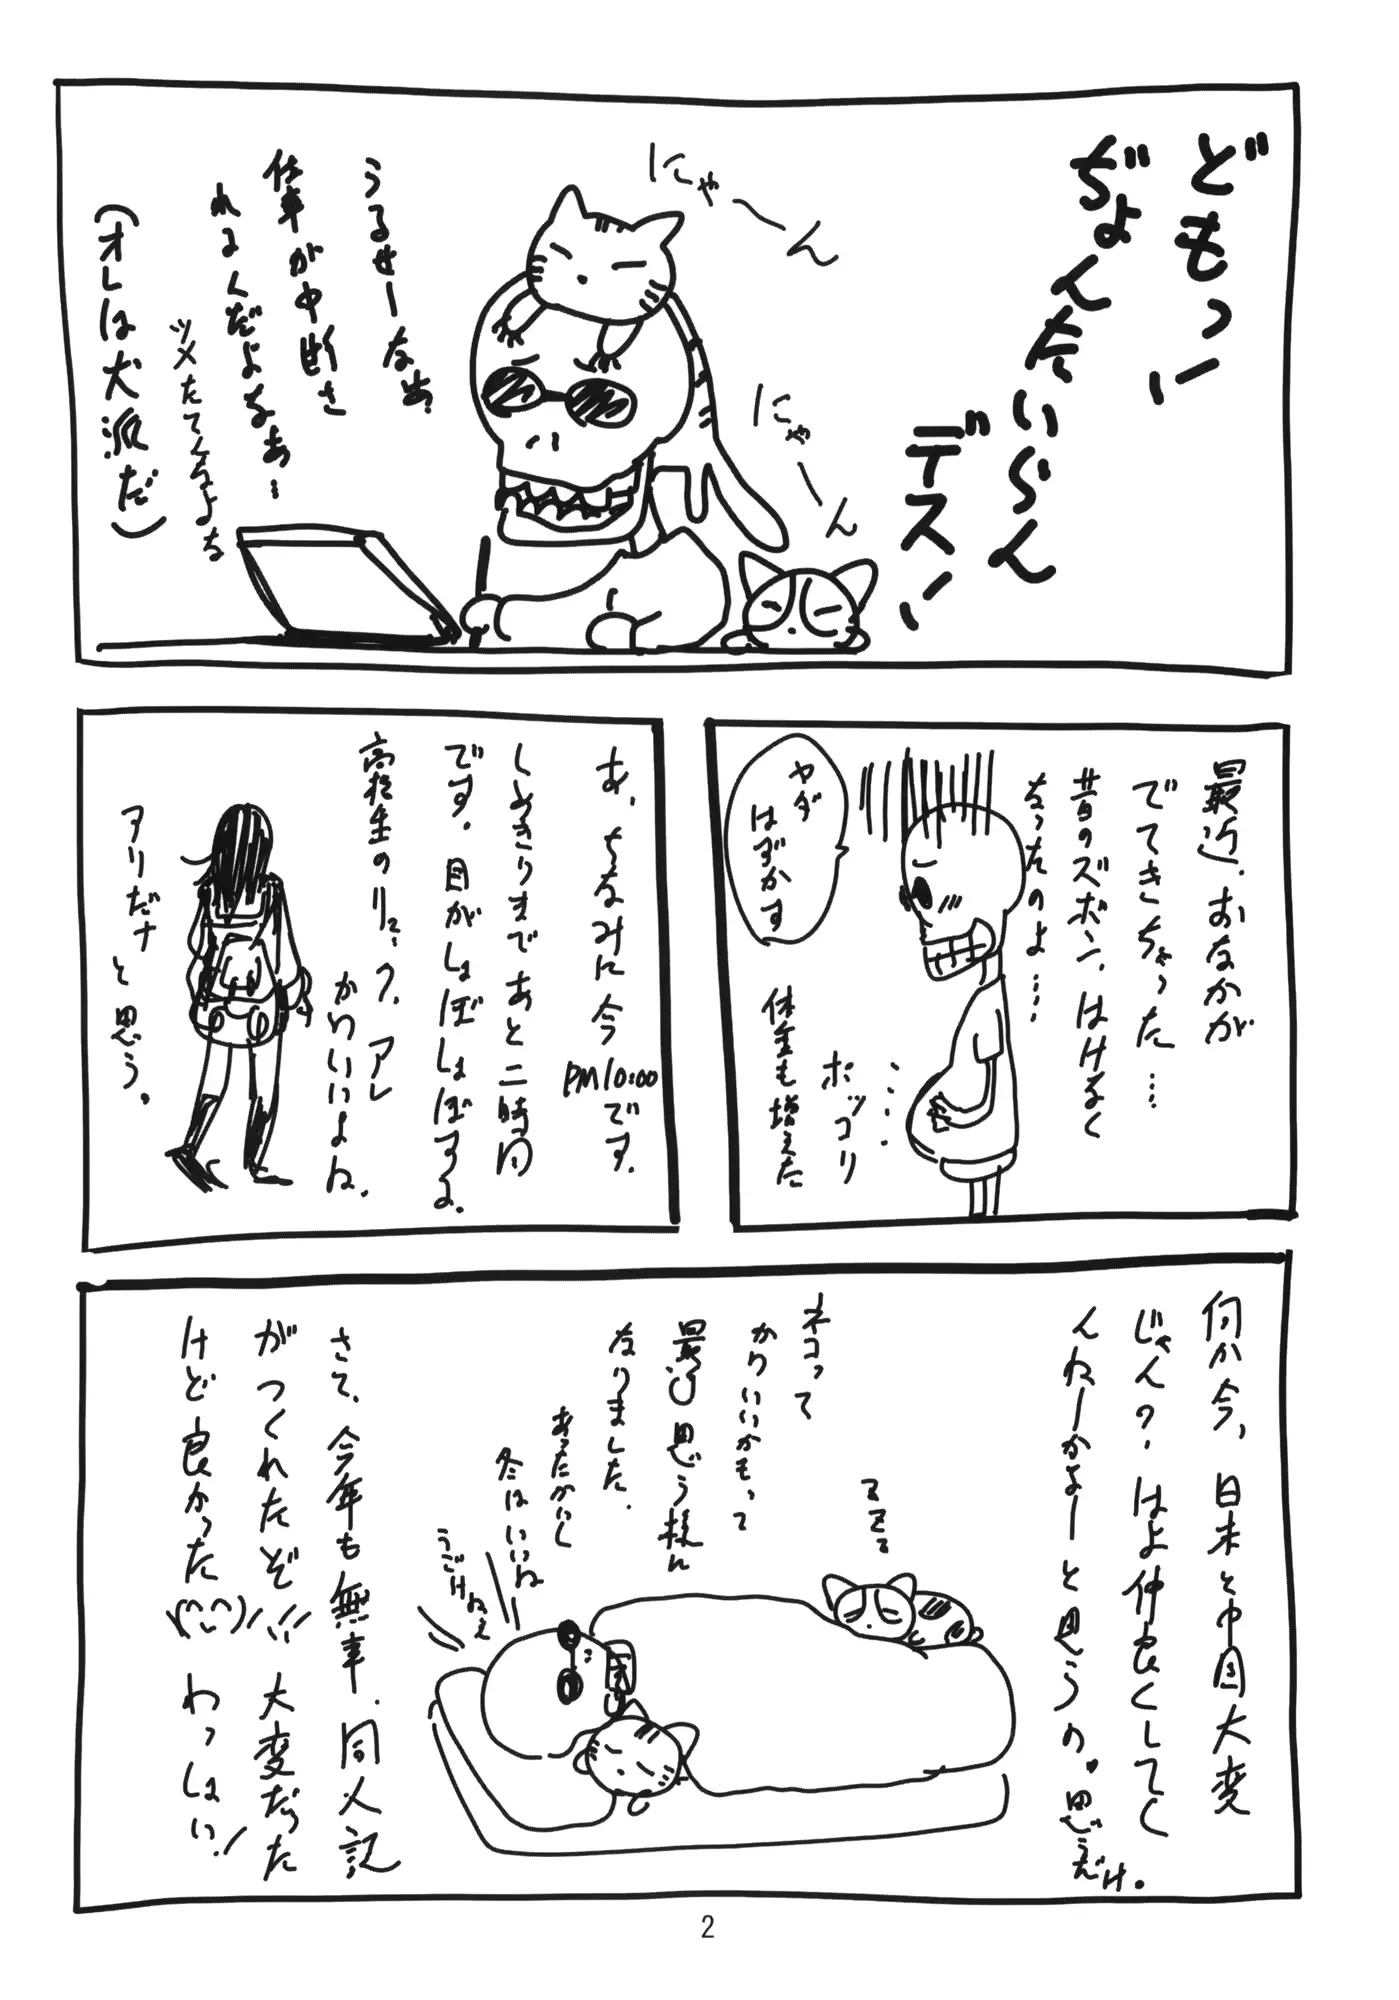 どもっ!
ぢょんたいらん
デス!
にゃ〜ん
にゃ〜ん
うるせーなぁ
仕事が中断さ
れるんだよなぁ…
ツメたてんなよな
(オレは犬派だ)
最近、おなかが
でてきちゃった…
昔のズボン、はけなく
なったのよ…
ヤダ
はずかす
ポッコリ
体重も増えた
あ、ちなみに今
PM10:00です。
しめきりまであと二時間
です。目がしょぼしょぼするよ。
高校生のリュック、アレ
かわいいよね。
アリだナ
と思う。
何か今、日本と中国大変
じゃん?はよ仲良くしてく
んねーかなーと思うの。思うだけ。
ネコって
かわいいかもって
最近思う様に
なりました。
あったかいし
冬はいいね
うごけねぇ
zzz
さて、今年も無事、同人誌
がつくれたぞ!!大変だった
けど良かった(^-^)わっしょい!
2